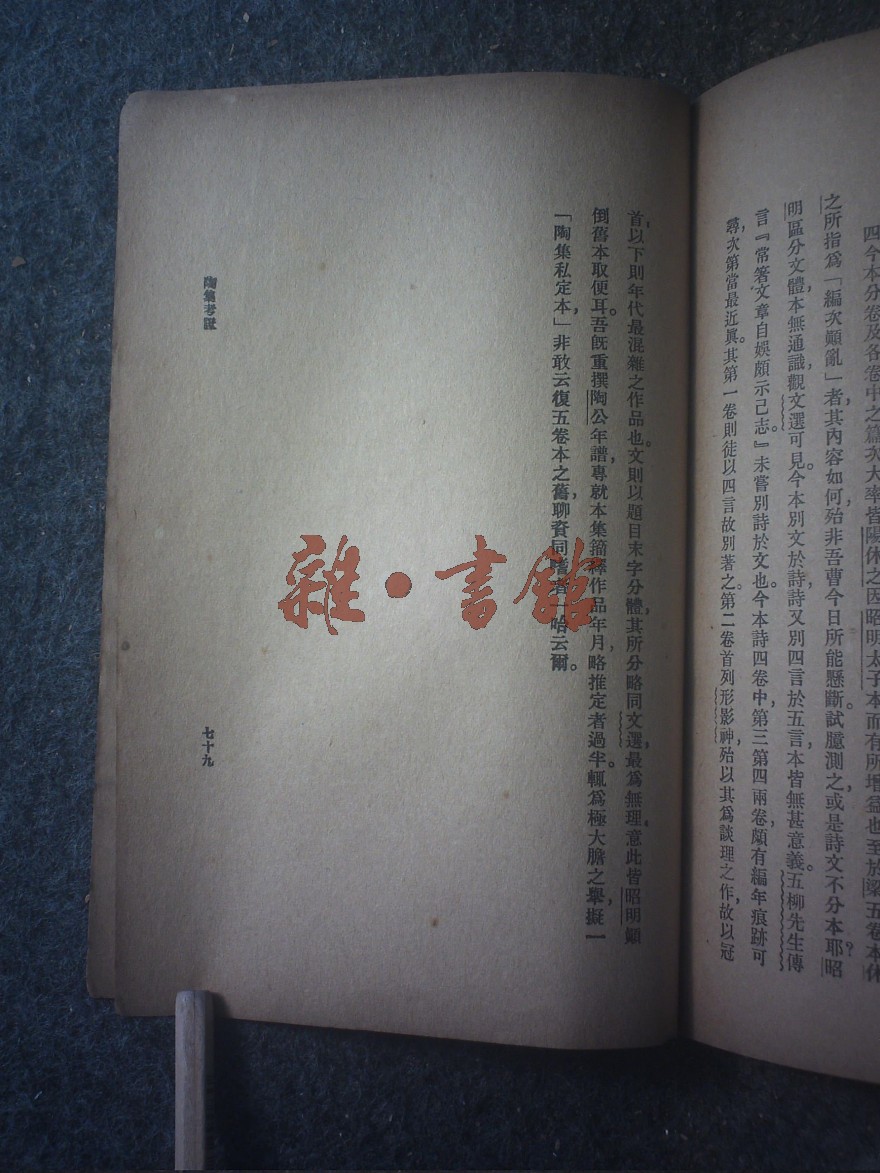 四今本分卷及各卷中之篇次大率皆陽休之因昭明太子本而有所增益也至於梁五卷本休
之所指爲「編次顚亂」者其內容如何殆非吾曹今日所能懸斷。試臆測之或是詩文不分本耶？昭
明區分文體本無通識觀文選可見。今本別文於詩，詩又別四言於五言，本皆無甚意義。五柳先生傳
言『常箸文章自娛頗示己志』未嘗別詩於文也。今本詩四卷中，第三第四兩卷頗有編年痕跡可
尋，次第當最近眞。其第一卷則徒以四言故別著之。第二卷首列形影神，殆以其爲談理之作，故以冠
首，以下則年代最混雜之作品也。文則以題目末字分體，其所分略同文選，最爲無理，意此皆昭明顚
倒舊本取便耳。吾旣重撰陶公年譜，專就本集籀繹作品年月，略推定者過半。輒爲極大膽之舉，擬一
「陶集私定本」，非敢云復五卷本之舊，聊資同嗜者一哈云爾。
陶集考證
七十九
雜·書館